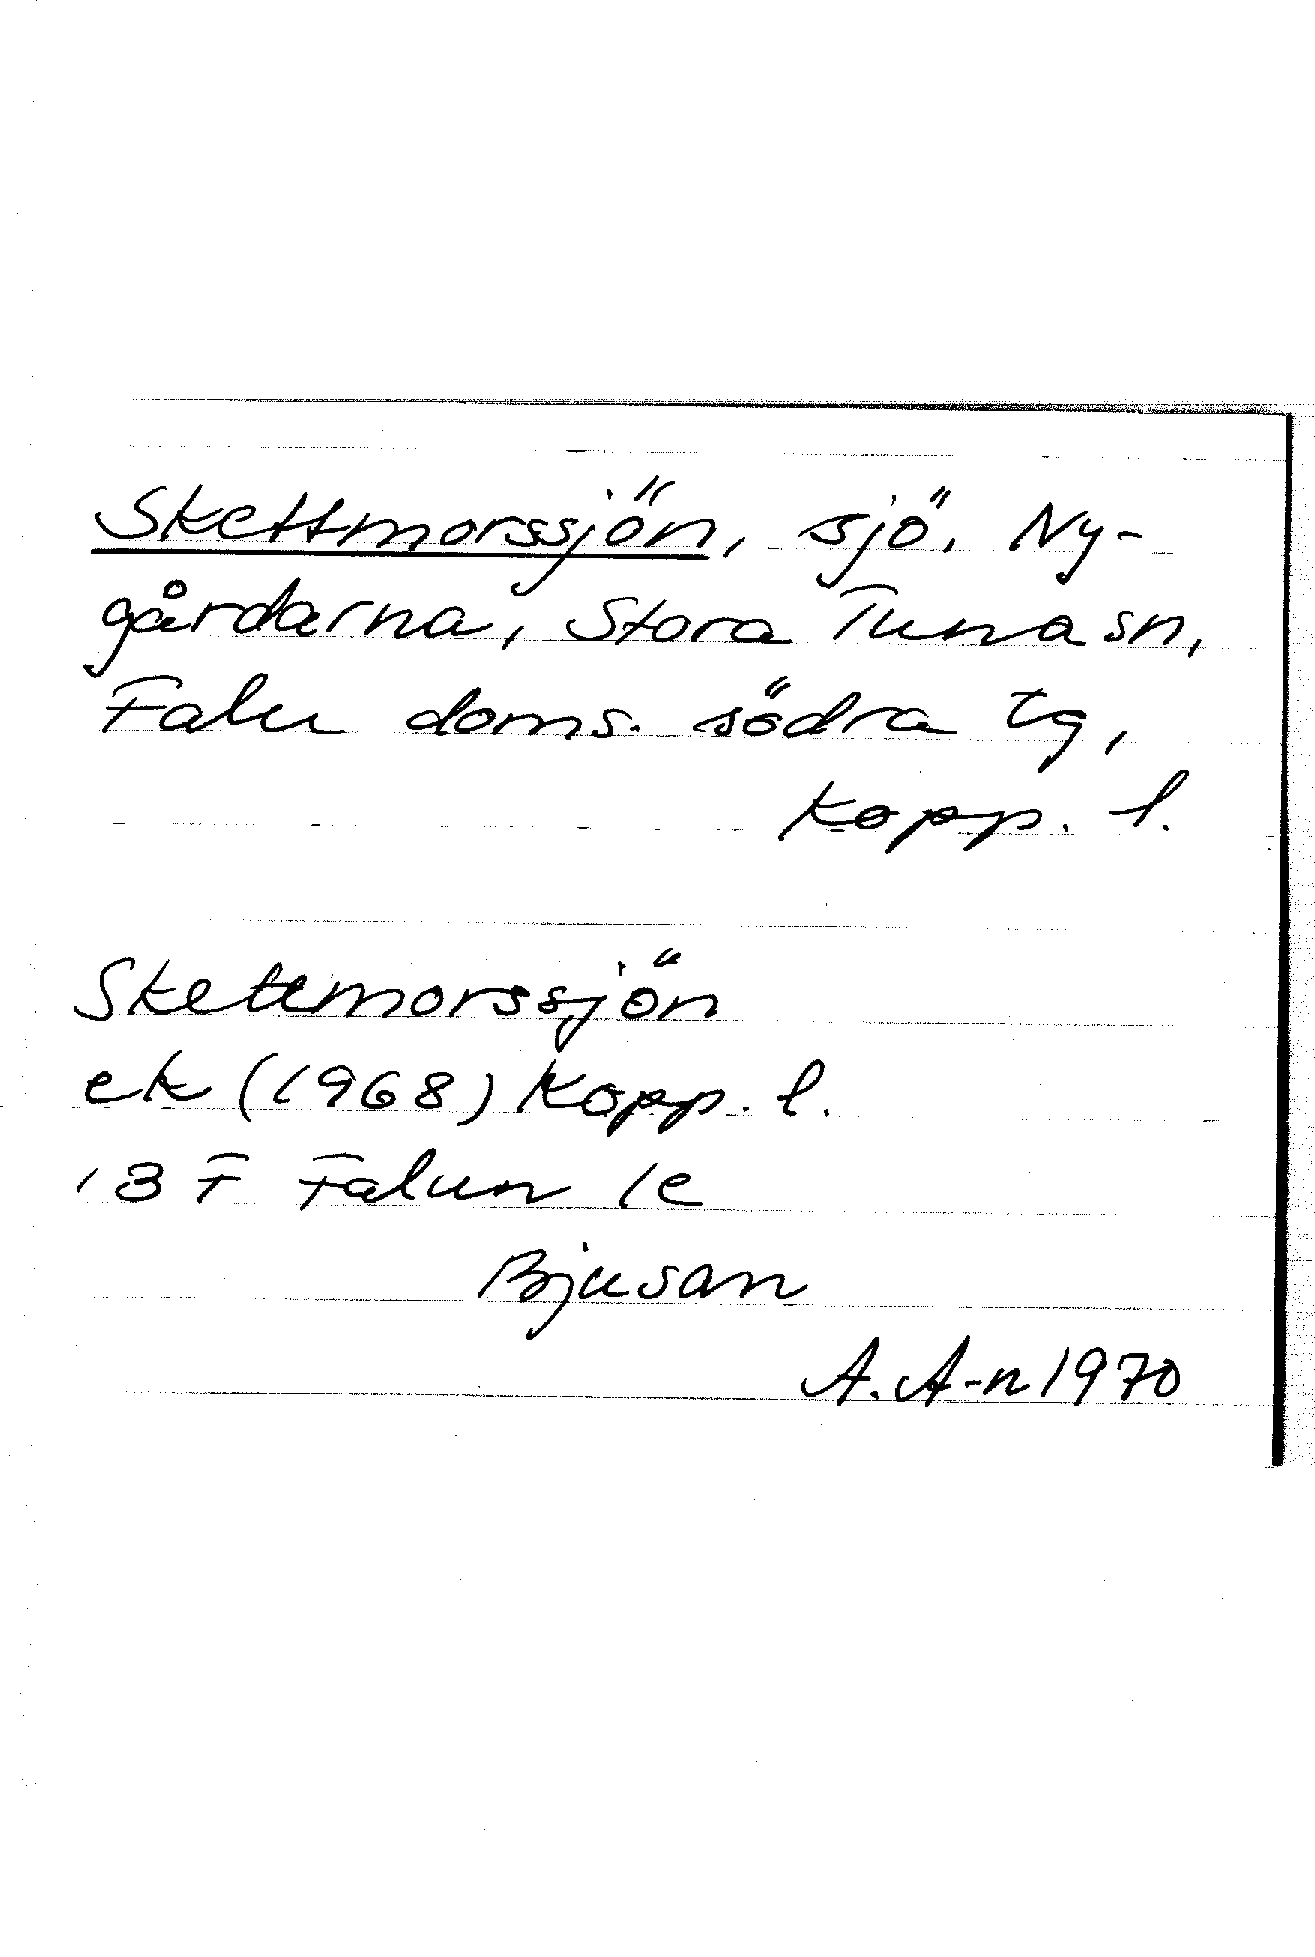 Skettmorssjön, sjö. Ny-
gårdarna, Stora Tuna sn,
Falu doms. södra tg,
Kopp. l.
Skettmorssjön
ek (1968) Kopp. l.
13 F Falun 1e
Bjusan
A. A-n 1970